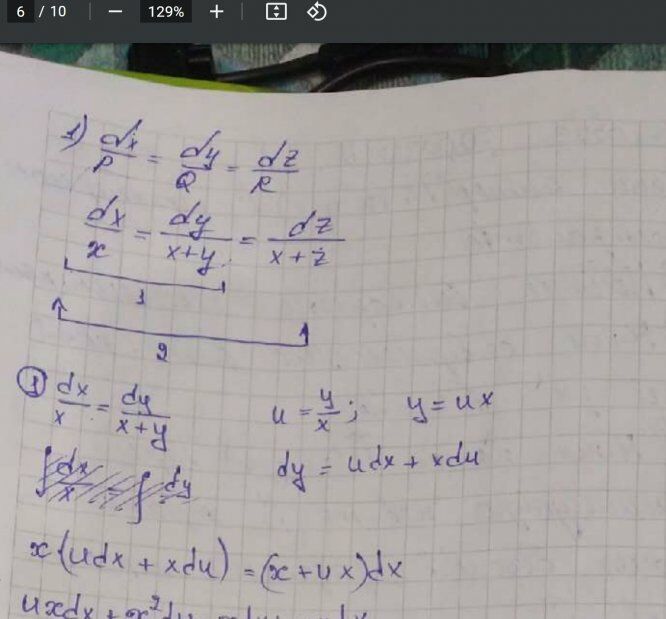 6 / 10 — 129% +
1) dx/P = dy/Q = dz/R
dx/x = dy/(x+y) = dz/(x+z)
1
2
① dx/x = dy/(x+y) u = y/x ; y = ux
∫ dx/x = ∫ dy dy = udx + xdu
x(udx + xdu) = (x+ux)dx
uxdx + x²du